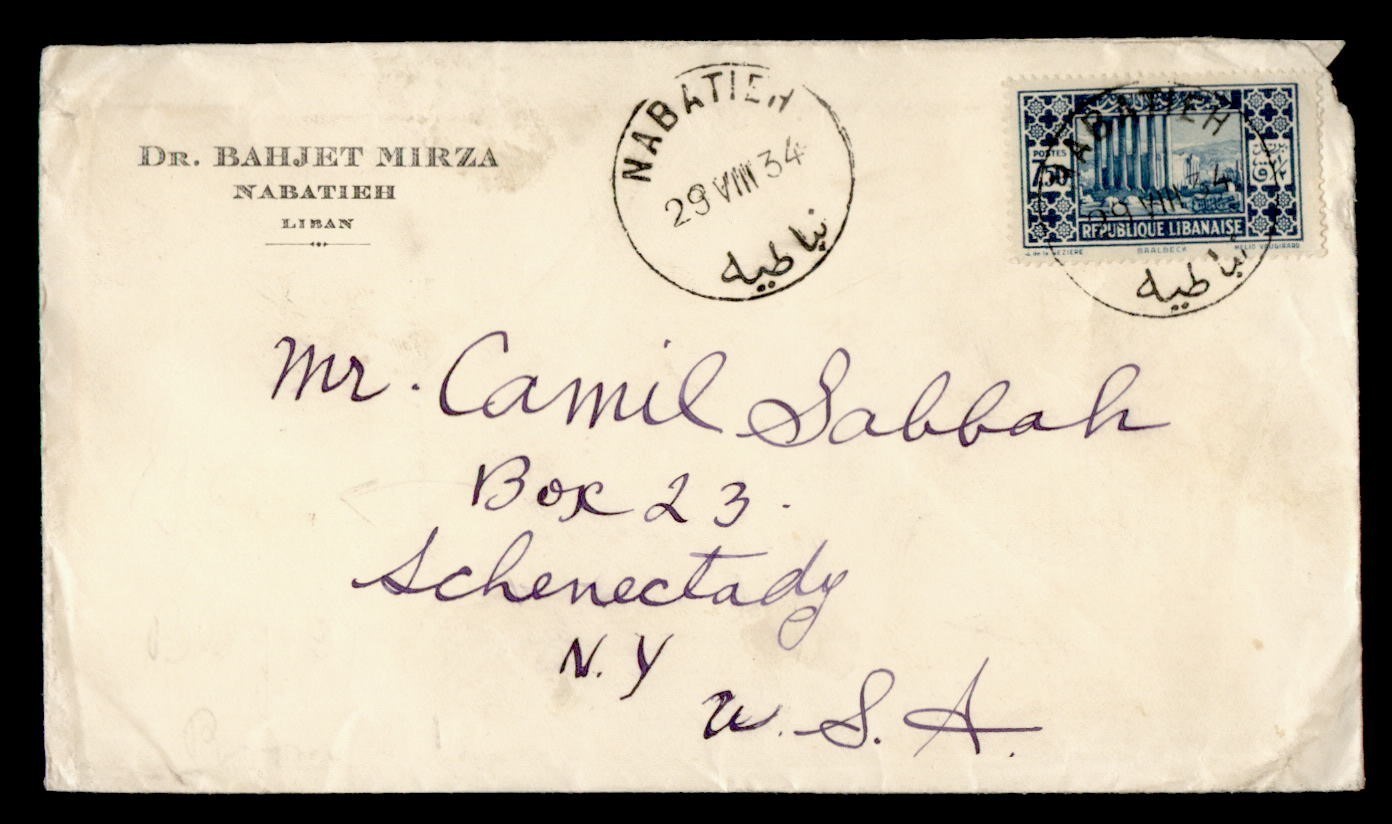 DR. BAHJET MIRZA
NABATIEH
LIBAN
NABATIEH
29 VIII 34
نباطيه
POSTES
7P50
REPUBLIQUE LIBANAISE
BAALBECK
HELIO VAUGIRARD
NABATIEH
29 VIII 34
نباطيه
Mr. Camil Sabbah
Box 23.
Schenectady
N.Y
U.S.A.